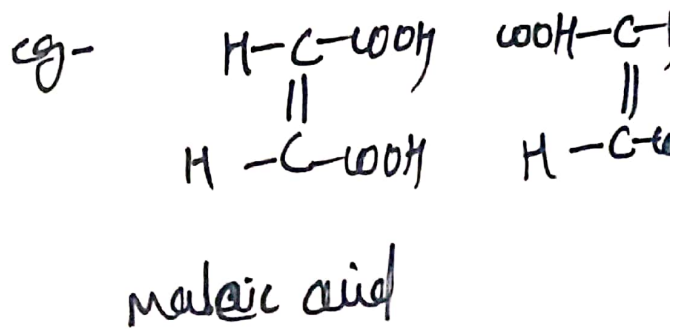 eg- H-C-COOH COOH-C-
|| ||
H -C-COOH H -C-
maleic acid